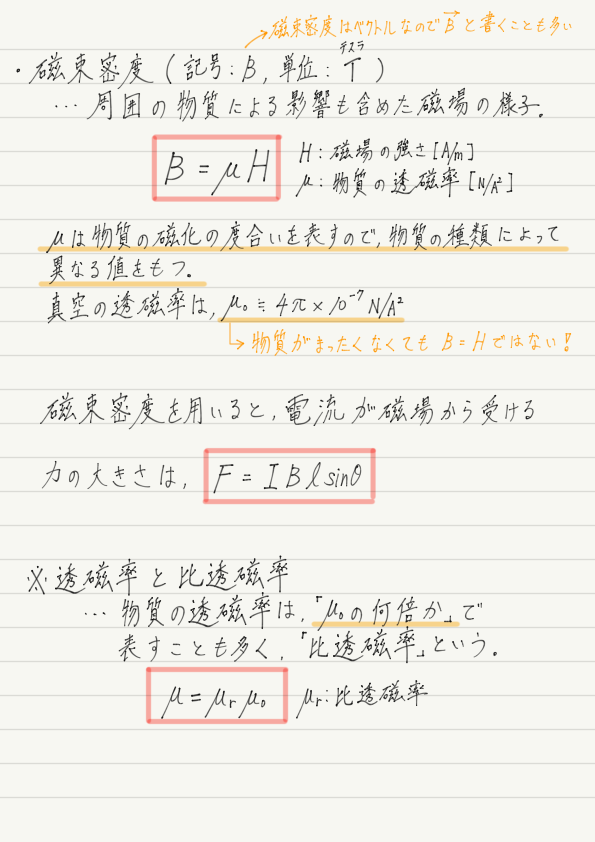 磁束密度はベクトルなのでB→と書くことも多い
テスラ
・磁束密度（記号：B, 単位：T）
… 周囲の物質による影響も含めた磁場の様子。
B = μH
H：磁場の強さ[A/m]
μ：物質の透磁率[N/A²]
μは物質の磁化の度合いを表すので, 物質の種類によって
異なる値をもつ。
真空の透磁率は, μ₀ ≒ 4π×10⁻⁷ N/A²
→ 物質がまったくなくても B = H ではない！
磁束密度を用いると, 電流が磁場から受ける
力の大きさは, F = IBl sinθ
※透磁率と比透磁率
… 物質の透磁率は,「μ₀の何倍か」で
表すことも多く,「比透磁率」という。
μ = μr μ₀ μr：比透磁率